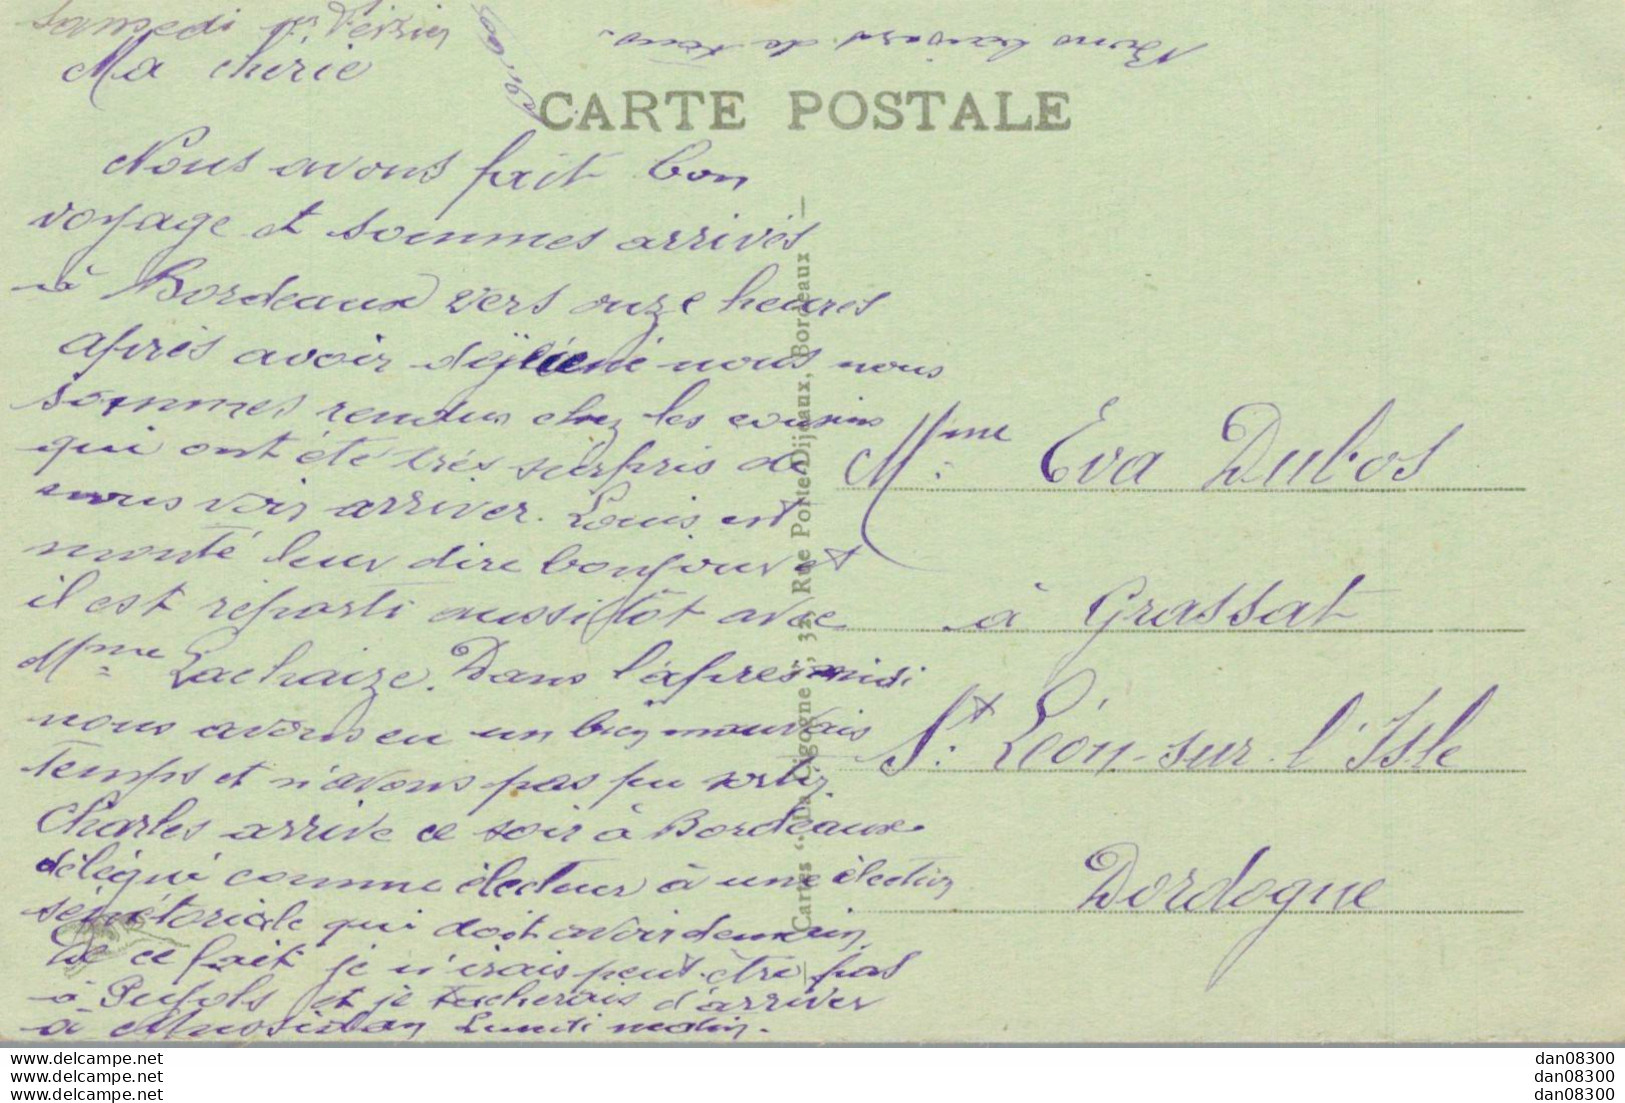 Samedi
Ma chérie
CARTE POSTALE
Nous avons fait bon
voyage et sommes arrivés
à Bordeaux vers onze heures
après avoir déjeuné nous nous
sommes rendus chez les cousins
qui ont été très surpris de
nous voir arriver. Louis est
monté leur dire bonjour et
il est reparti aussitôt avec
Mme Lachaize. Dans l'après midi
nous avons eu un bien mauvais
temps et n'avons pas pu sortir.
Charles arrive ce soir à Bordeaux
délégué comme électeur à une élection
sénatoriale qui doit avoir demain
De ce fait je n'irais peut-être pas
à et je tacherais d'arriver
à Mussidan Lundi matin.
Bons baisers de tous.
Cartes "La Cigogne", 32, Rue Porte-Dijeaux, Bordeaux
Mme Eva Dubos
à Grassat
St Léon-sur-l'Isle
Dordogne
www.delcampe.net
www.delcampe.net
www.delcampe.net
dan08300
dan08300
dan08300